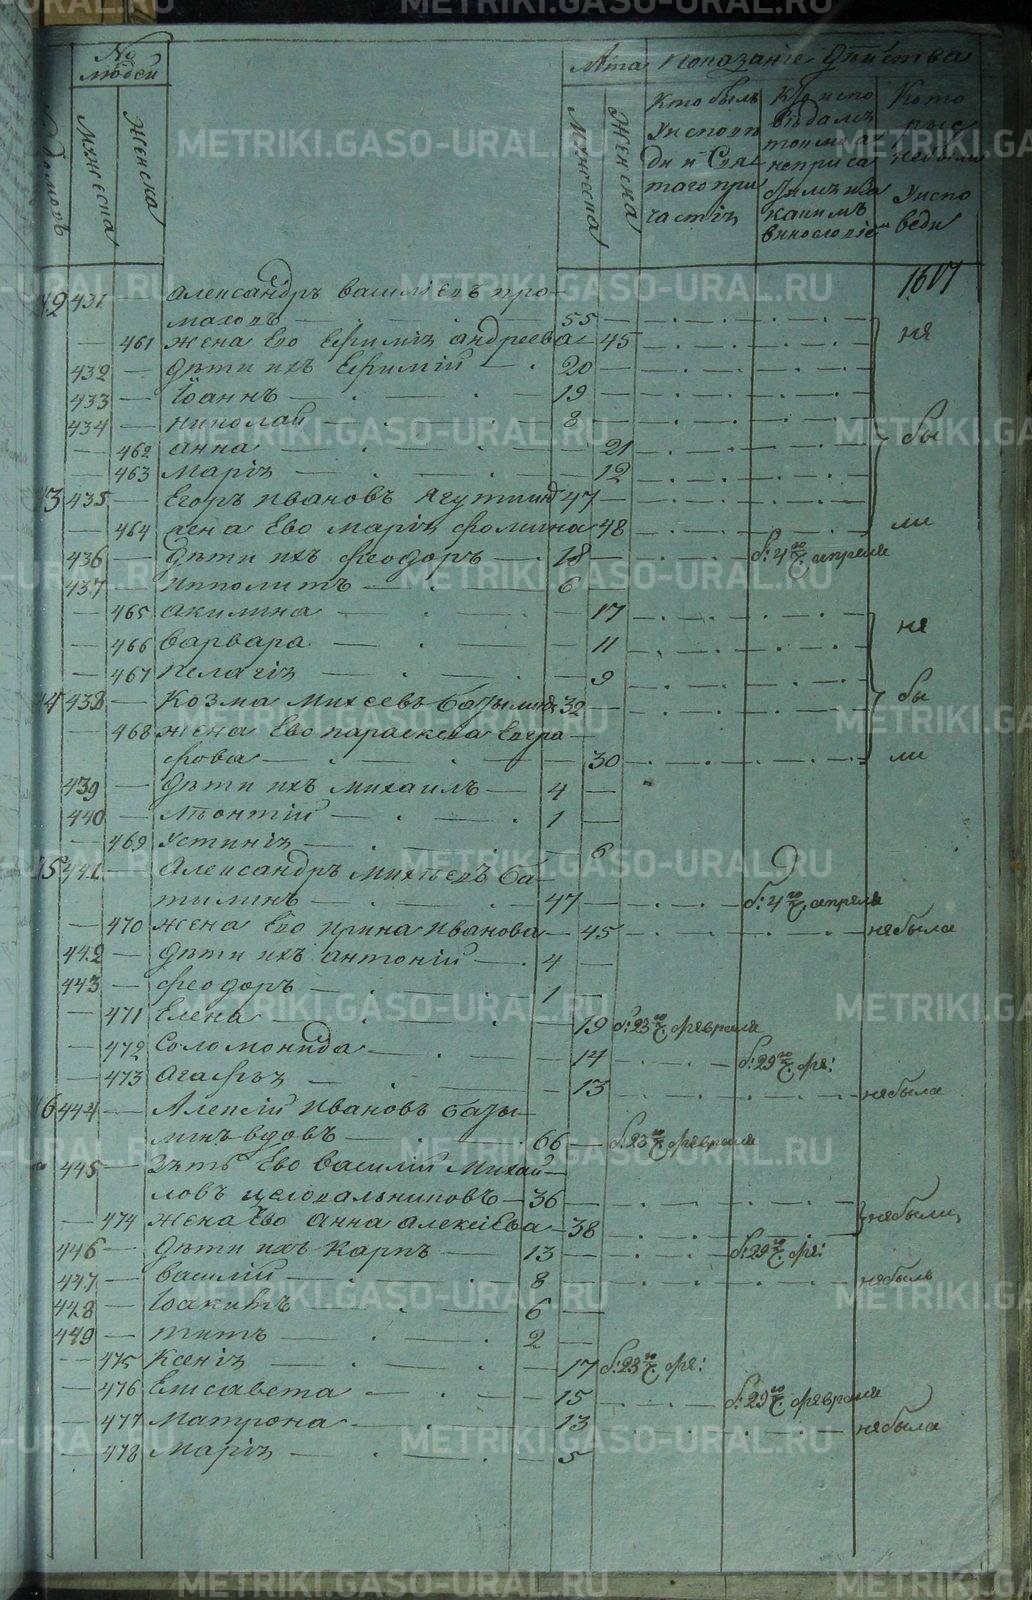 № людей
Лѣта Показаніе Дѣйства
домовъ
Мужеска
Женска
Мужеска
Женска
Кто былъ У исповѣди и Святаго причастія
Кто исповѣдался токмо а непричастился и за какимъ винословіемъ
Которые небыли У исповеди
1607
431 — Александръ василіевъ про-
маховъ — 55 —
— 461 жена Ево Ефимія андреева — 45 ня
432 — дѣти ихъ Ефимій — 20 —
433 — Iоаннъ — 19 —
434 — николай — 8 —
— 462 анна — 21 бы
— 463 Марія — 12
435 — Егоръ ивановъ 47 —
— 464 жена Ево Марія фомина 48 ли
436 — дѣти ихъ феодоръ — 18 — б: 4го ч. апреля
437 — Ипполитъ — 6 —
— 465 акилина — 17
— 466 варвара — 11 ня
— 467 пелагія — 9
438 — Козма Михеевъ 32 — бы
— 468 жена Ево параскева Евгра
фова — 30 ли
439 — дѣти ихъ михаилъ — 4 —
440 — Леонтій — 1 —
— 469 Устинія — 6
441 — Александръ Михѣевъ ба-
тилинъ — 47 — б: 4го ч. апреля
— 470 жена Ево ирина иванова — 45 небыла
442 — дѣти ихъ антоній — 4 —
443 — феодоръ — 1 —
— 471 Елена — 19 б: 23го ч. февраля
— 472 Соломонида — 14 б: 29го ч. фе:
— 473 агафья — 13 небыла
444 — Алексій ивановъ базы-
линъ вдовъ — 66 — б: 23го ч. февраля
445 — зять Ево василій Михай-
ловъ целовальниковъ — 36 —
— 474 жена Ево анна алексіева — 38 небыли
446 — дѣти ихъ Карпъ — 13 — б: 29го ч. фе:
447 — василій — 8 — небылъ
448 — Iоакимъ — 6 —
449 — титъ — 2 —
— 475 Ксенія — 17 б: 23го ч. фе:
— 476 Елисавета — 15 б: 29го ч. февраля
— 477 Матрона — 13 небыла
— 478 Марія — 5
METRIKI.GASO-URAL.RU